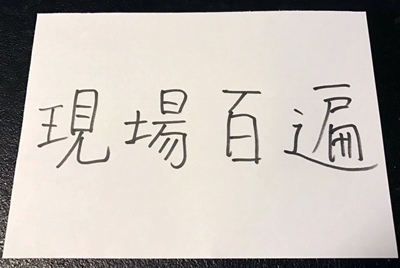 現場百遍